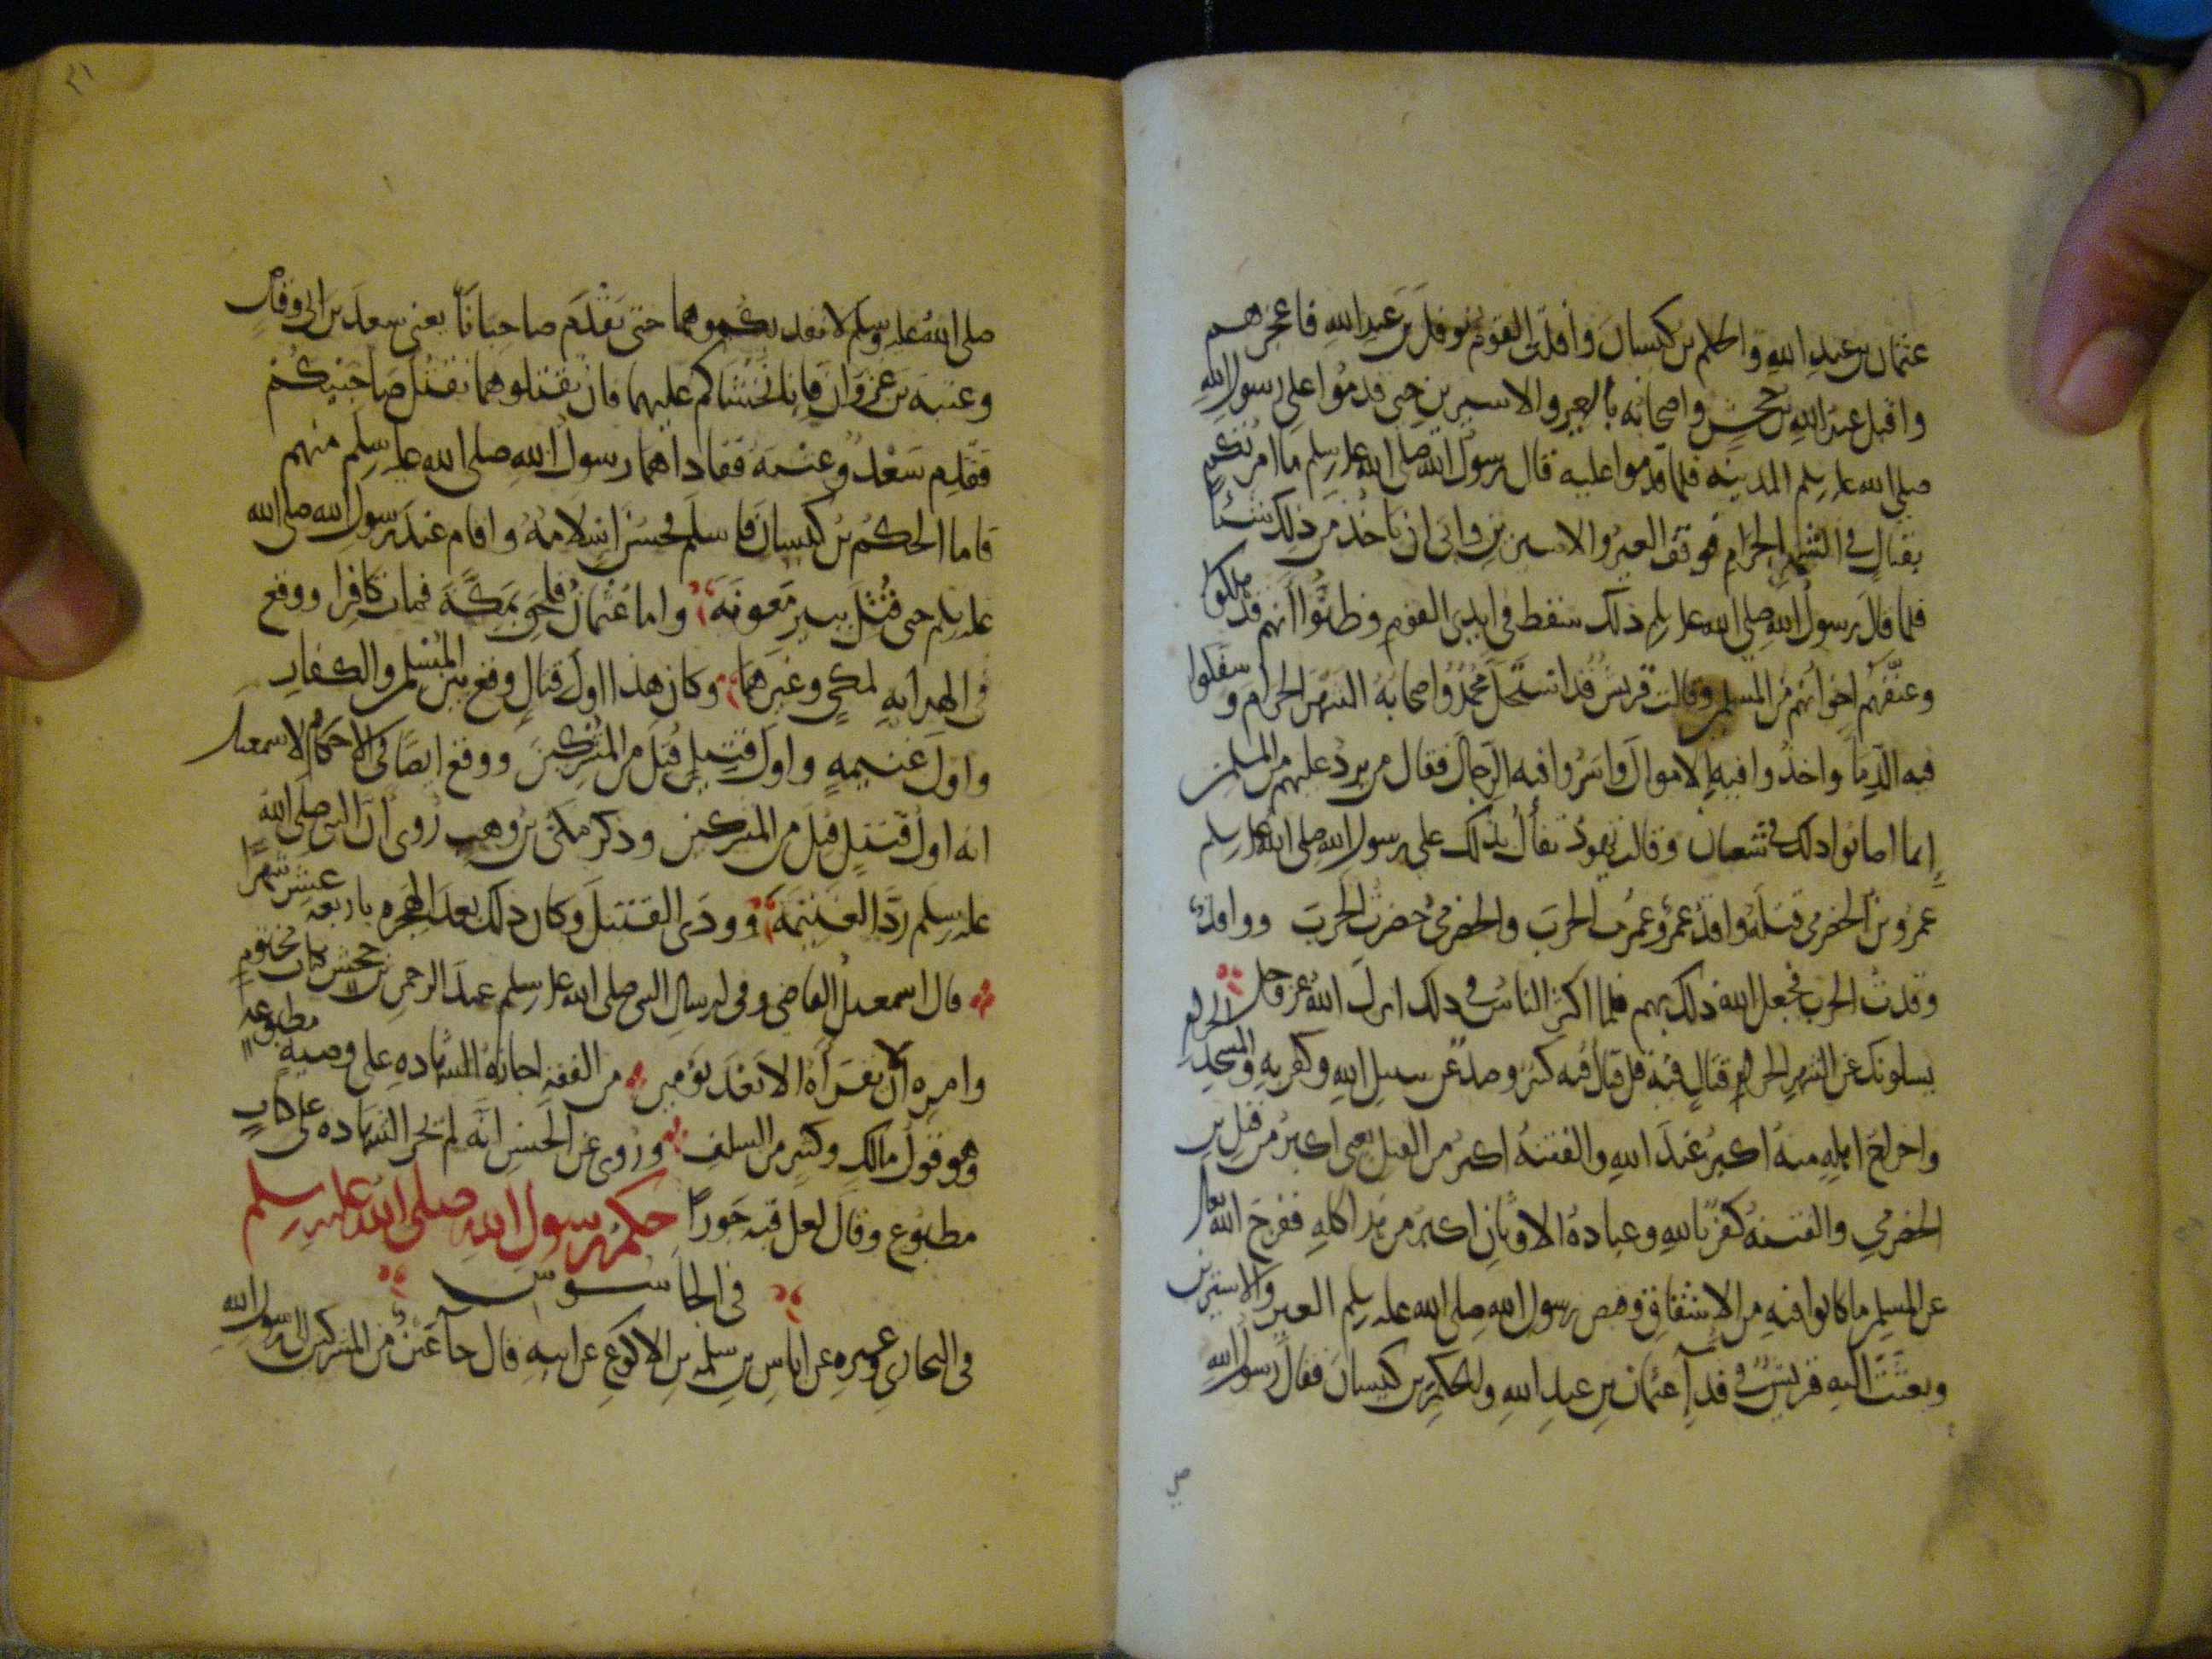 عثمان بن عبد الله والحكم بن كيسان وافلت القوم نوفل بن عبد الله فاعجزهم
واقبل عبد الله بن جحش واصحابه بالعير والاسيرين حتى قدموا على رسول الله
صلى الله عليه وسلم المدينة فلما قدموا عليه قال رسول الله صلى الله عليه وسلم ما امرتكم
بقتال في الشهر الحرام فوقف العير والاسيرين وابى ان ياخذ من ذلك شيئا
فلما قال رسول الله صلى الله عليه وسلم ذلك سقط في ايدي القوم وظنوا انهم قد هلكوا
وعنفهم اخوانهم من المسلمين وقالت قريش قد استحل محمد واصحابه الشهر الحرام وسفكوا
فيه الدما واخذوا فيه الاموال واسروا فيه الرجال فقال من يرد عليهم من المسلمين
إنما اصابوا ذلك في شعبان وقالت يهود تفأل بذلك على رسول الله صلى الله عليه وسلم
عمرو بن الحضرمي قتله واقد عمرو عمرت الحرب والحضرمي حضرت الحرب وواقد
وقدت الحرب فجعل الله ذلك بهم فلما اكثر الناس في ذلك انزل الله عز وجل
يسلونك عن الشهر الحرام قتال فيه قل قتال فيه كبير وصد عن سبيل الله وكفر به والمسجد الحرام
واخراج اهله منه اكبر عند الله والفتنة اكبر من القتل يعني اكبر من قتل بن
الحضرمي والفتنة كفر بالله وعبادة الاوثان اكبر من هذا كله ففرج الله تعالى
عن المسلمين ما كانوا فيه من الاشفاق وقبض رسول الله صلى الله عليه وسلم العير والاسيرين
وبعثت اليه قريش في فدآ عثمان بن عبد الله والحكم بن كيسان فقال رسول الله
٢١
صلى الله عليه وسلم لا نفديكموهما حتى يقدم صاحبانا يعني سعد بن ابي وقاص
وعتبة بن غزوان فانا نخشاكم عليهما فان تقتلوهما نقتل صاحبيكم
فقدم سعد وعتبة ففاداهما رسول الله صلى الله عليه وسلم منهم
فاما الحكم بن كيسان فاسلم فحسن اسلامه واقام عند رسول الله صلى الله
عليه وسلم حتى قتل ببير معونة واما عثمان فلحق بمكة فمات كافرا ووقع
في الهداية لمكي وغيرهما وكان هذا اول قتال وقع بين المسلمين والكفار
واول غنيمة واول قتيل قتل من المشركين ووقع ايضا في الاحكام لاسمعيل
انه اول قتيل قتل من المشركين وذكر مكي بن وهب روى ان النبي صلى الله
عليه وسلم رد الغنيمة وودى القتيل وكان ذلك بعد الهجرة باربعة عشر شهرا
قال اسمعيل القاضي وفي ارسال النبي صلى الله عليه وسلم عبد الرحمن بن جحش بكتاب مختوم
وامره الا يقرأه الا بعد يومين من الفقه اجازة الشهادة على وصية مطبوعة
وهو قول مالك وكثير من السلف وروى عن الحسن انه لم يجز الشهادة على كتاب
مطبوع وقال لعل فيه جورا حكم رسول الله صلى الله عليه وسلم
في الجاسوس
في البخاري وغيره عن اياس بن سلمة بن الاكوع عن ابيه قال جآ عين من المشركين الى رسول الله